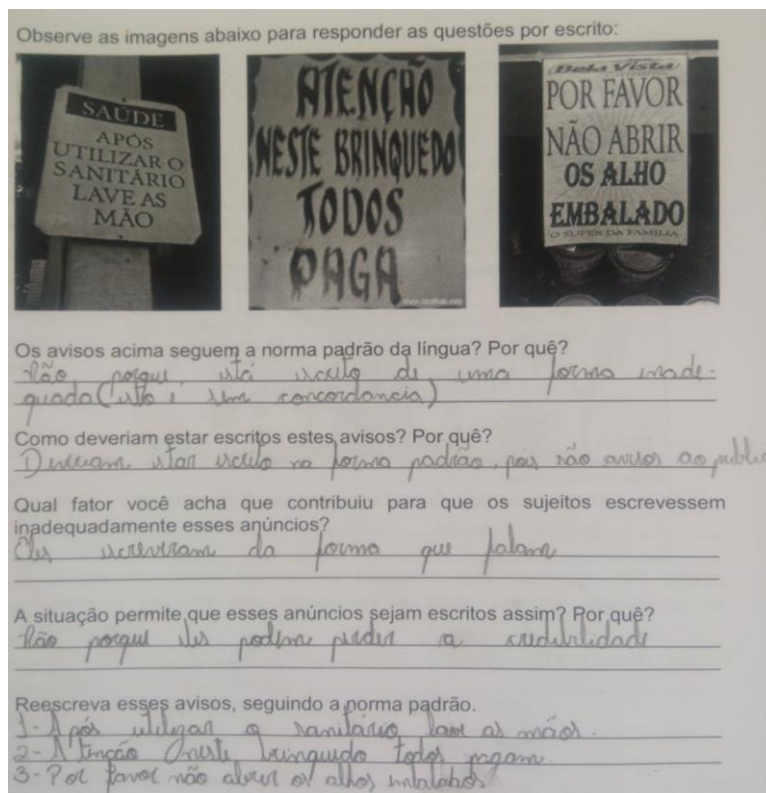 Observe as imagens abaixo para responder as questões por escrito:
SAÚDE
APÓS
UTILIZAR O
SANITÁRIO
LAVE AS
MÃO
ATENÇÃO
NESTE BRINQUEDO
TODOS
PAGA
Bela Vista
POR FAVOR
NÃO ABRIR
OS ALHO
EMBALADO
O SUPER DA FAMILIA
Os avisos acima seguem a norma padrão da língua? Por quê?
Não porque está escrito de uma forma inade-
quada (isto é sem concordancia)
Como deveriam estar escritos estes avisos? Por quê?
Deveriam estar escrito na forma padrão, pois são avisos ao public
Qual fator você acha que contribuiu para que os sujeitos escrevessem
inadequadamente esses anúncios?
Eles escreveram da forma que falam
A situação permite que esses anúncios sejam escritos assim? Por quê?
Não porque eles podem perder a credibilidade
Reescreva esses avisos, seguindo a norma padrão.
1- Após utilizar o sanitário lave as mãos.
2- Atenção neste brinquedo todos pagam
3- Por favor não abrir os alhos